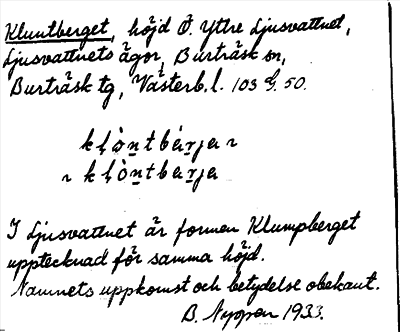 Kluntberget, höjd Ö. Yttre Ljusvattnet,
Ljusvattnets ägor, Burträsk sn,
Burträsk tg, Västerb.l. 103 G. 50.
kḷò̱ṉtbárja ~
~ kḷò̱ṉtba̱rja
I Ljusvattnet är formen Klumpberget
upptecknad för samma höjd.
Namnets uppkomst och betydelse obekant.
B. 1933.